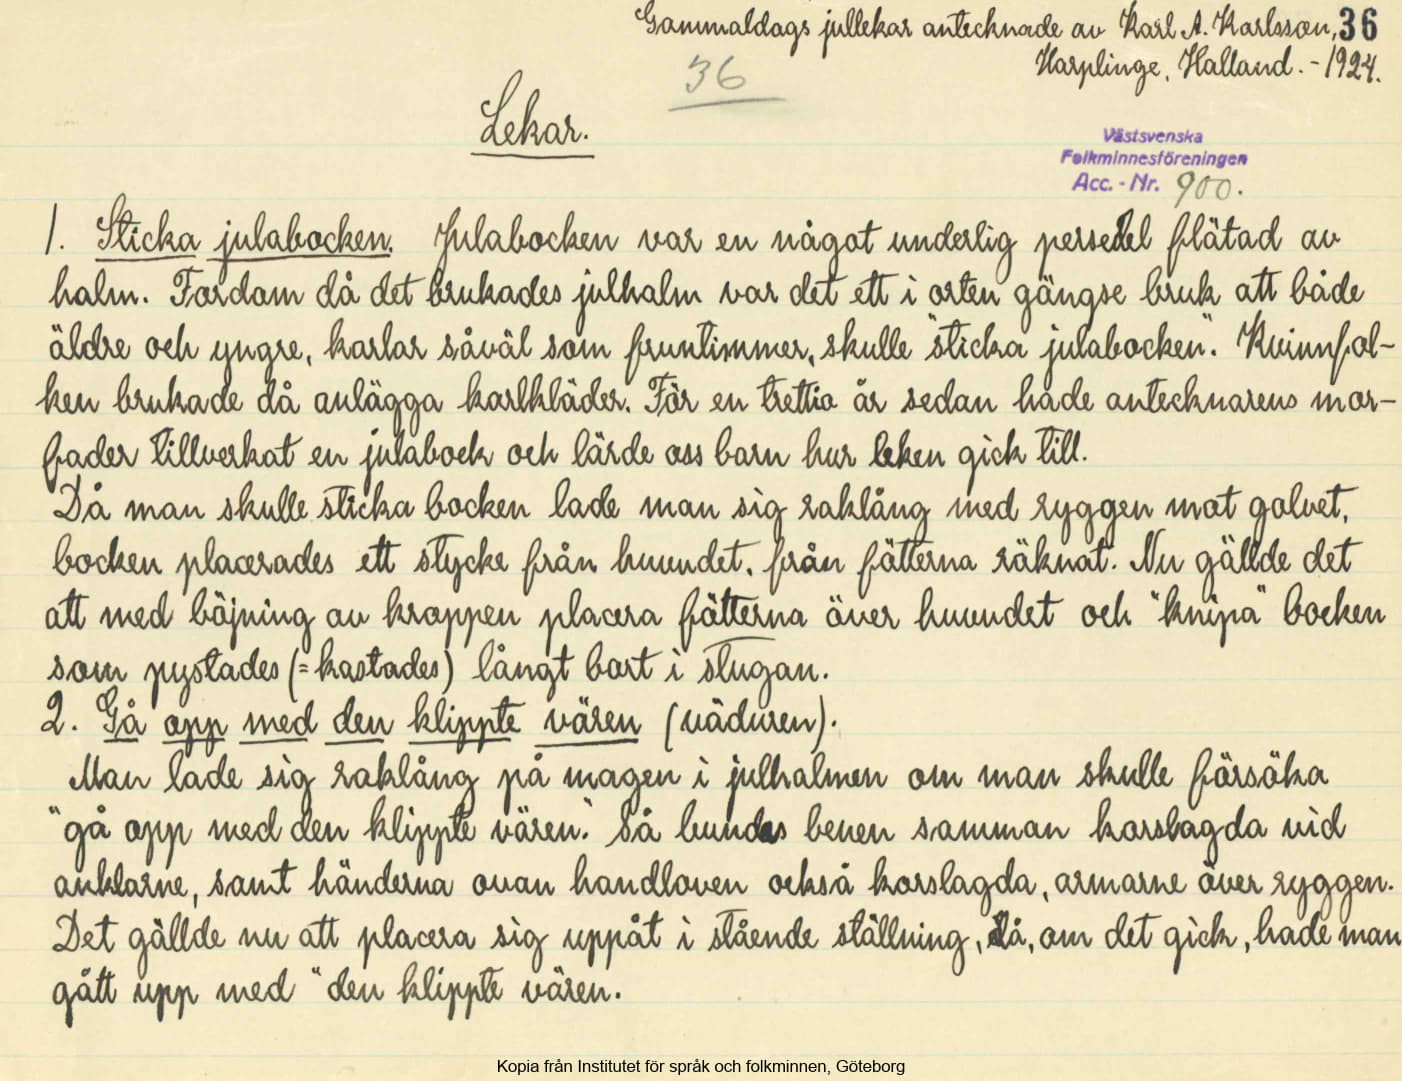 Gammaldags jullekar antecknade av Karl A. Karlsson, 36
Harplinge, Halland. - 1924.
36
Lekar.
Västsvenska
Folkminnesföreningen
Acc. - Nr. 900.
1. Sticka julabocken. Julabocken var en något underlig persedel flätad av
halm. Fordom då det brukades julhalm var det ett i orten gängse bruk att både
äldre och yngre, karlar såväl som fruntimmer, skulle "sticka julabocken". Kvinnfol-
ken brukade då anlägga karlkläder. För en trettio år sedan hade antecknarens mor-
fader tillverkat en julabock och lärde oss barn hur leken gick till.
Då man skulle sticka bocken lade man sig raklång med ryggen mot golvet,
bocken placerades ett stycke från huvudet, från fötterna räknat. Nu gällde det
att med böjning av kroppen placera fötterna över huvudet och "knipa" bocken
som pystades (= kastades) långt bort i stugan.
2. Gå opp med den klippte vären (väduren).
Man lade sig raklång på magen i julhalmen om man skulle försöka
"gå opp med den klippte vären." Så bundos benen samman korslagda vid
anklarne, samt händerna ovan handloven också korslagda, armarne över ryggen.
Det gällde nu att placera sig uppåt i stående ställning, då, om det gick, hade man
gått upp med "den klippte vären.
Kopia från Institutet för språk och folkminnen, Göteborg